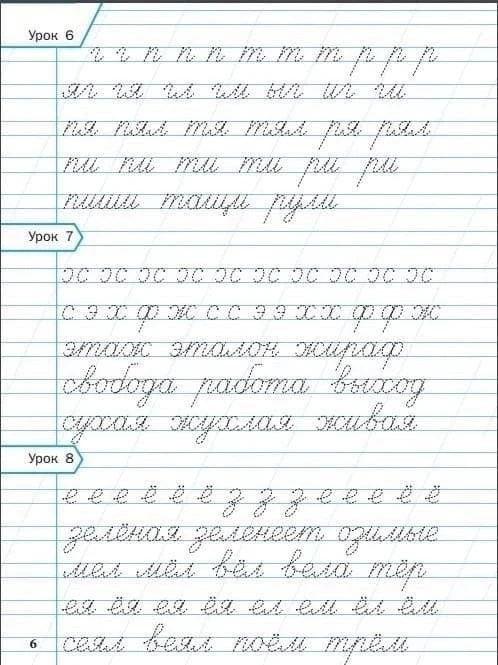 Урок 6
г г п п п т т т р р р
яг гя гл гм ыг иг ги
пя пял тя тял ря рял
пи пи ти ти ри ри
пиши тащи рули
Урок 7
эс эс эс эс эс эс эс эс эс эс
с э х ф ж с с э э х х ф ф ж
этаж эталон жираф
свобода работа выход
сухая жухлая живая
Урок 8
е е е ё ё ё з з з е е е ё ё
зелёная зеленеет озимые
мел мёл вёл вела тёр
ея ёя ея ёя ел ем ёл ём
6 сеял веял поём трём